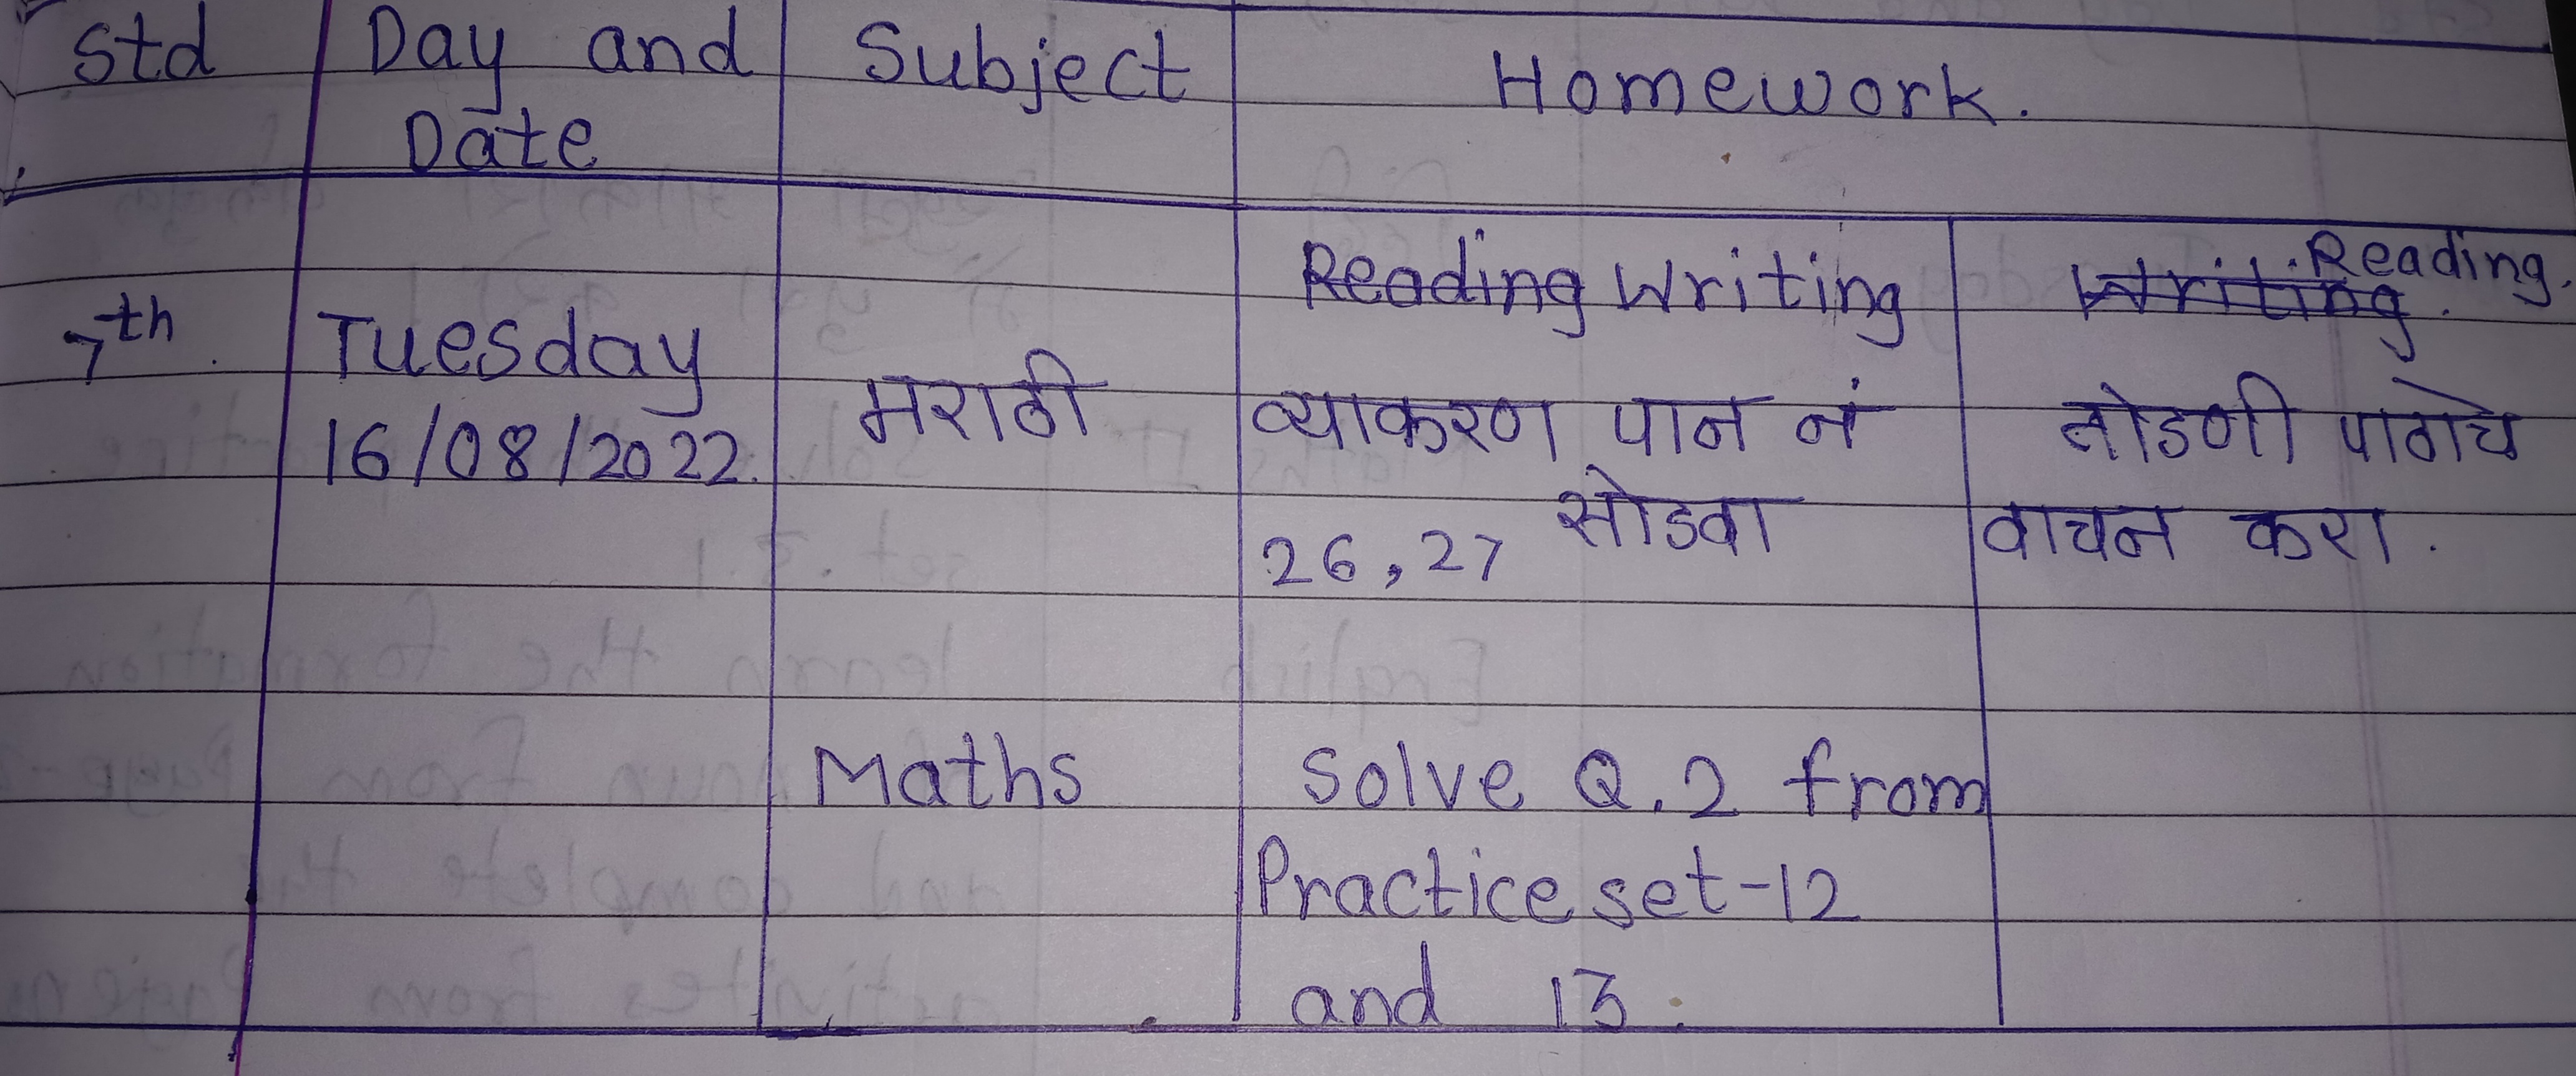 Std Day and Subject Homework.
Date
Reading Writing Writing. Reading.
7th. Tuesday
16/08/2022. मराठी व्याकरण पान नं तोडणी पाठाचे
26, 27 सोडवा वाचन करा.
Maths Solve Q.2 from
Practice set-12
and 13.